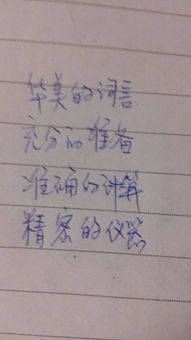 华美的词言
充分的准备
准确的计算
精密的仪器